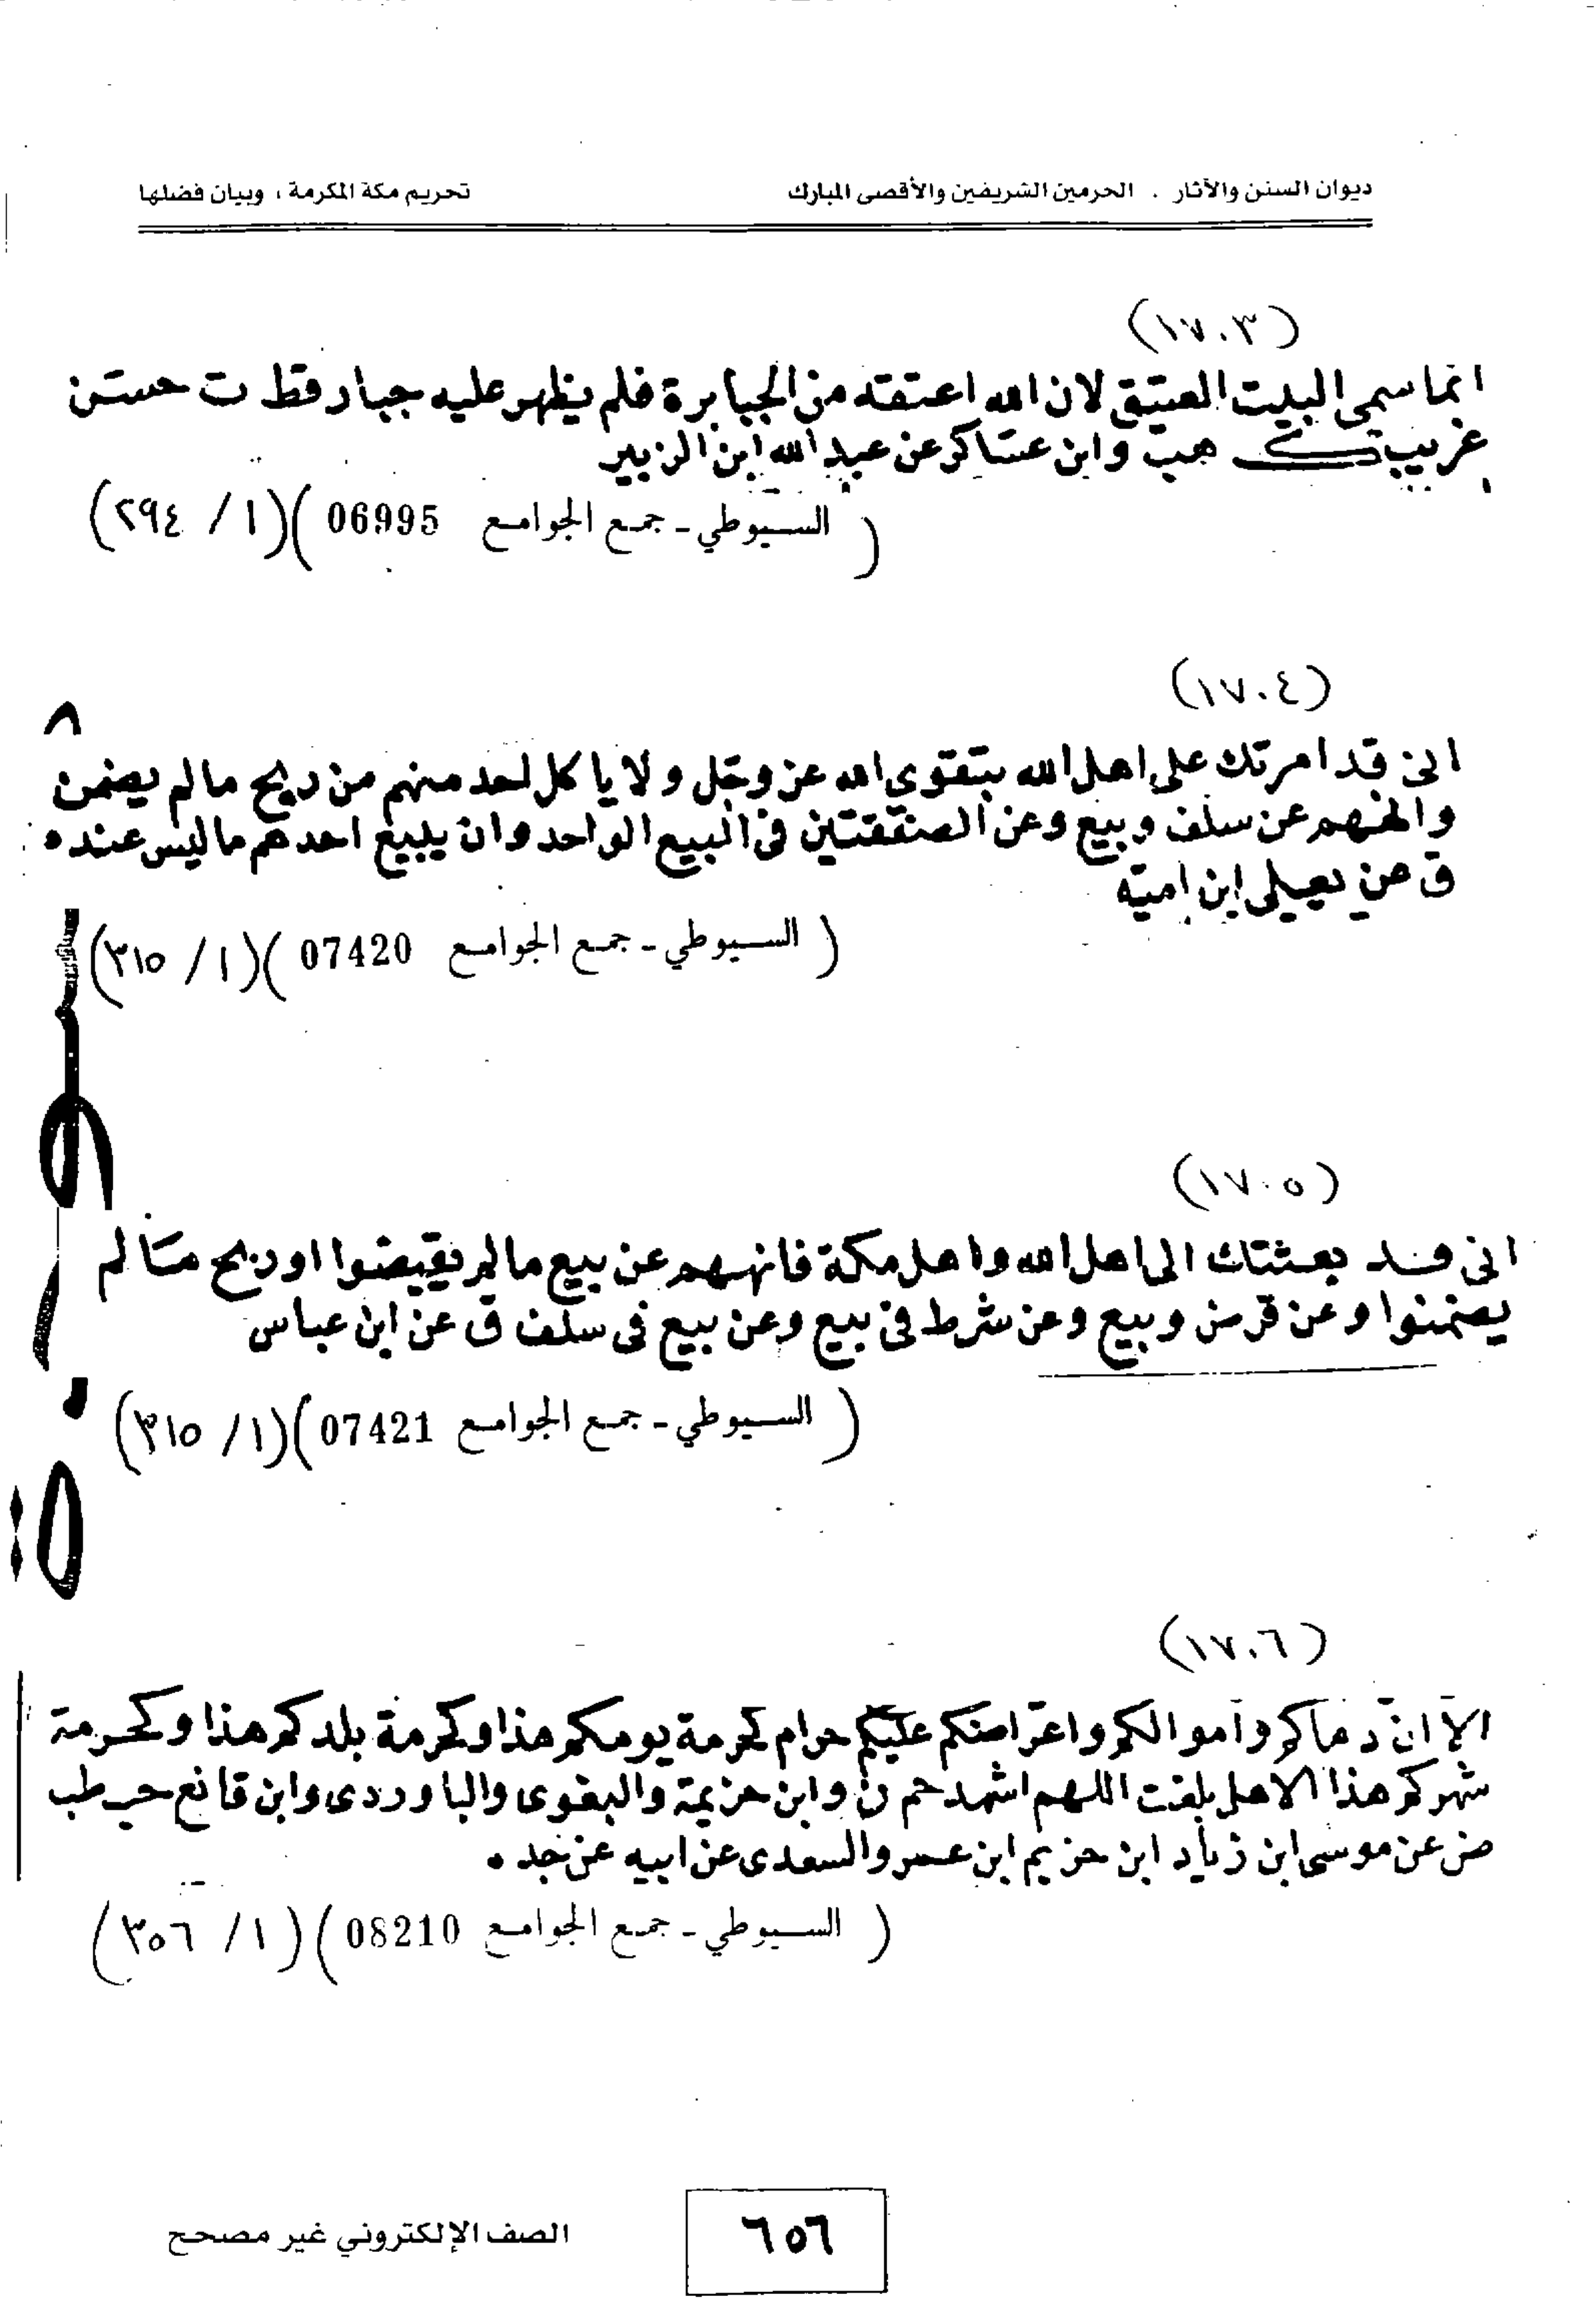 ديوان السنن والآثار . الحرمين الشريفين والأقصى المبارك
تحريم مكة المكرمة ، وبيان فضلها
(١٧٠٣)
انما سمى البيت العتيق لان الله اعتقه من الجبابرة فلم يظهر عليه جبار قط ت حسن
غريب ك هب وابن عساكر عن عبد الله ابن الزبير
( السيوطي - جمع الجوامع 06995 )(١ / ٢٩٤)
(١٧٠٤)
انى قد امرتك على اهل الله بتقوى الله عز وجل ولا يا كل احد منهم من ربح ما لم يضمن
وانههم عن سلف وبيع وعن الصفقتين فى البيع الواحد وان يبيع احدهم ما ليس عنده
ق عن يعلى ابن امية
( السيوطي - جمع الجوامع 07420 )(١ / ٣١٥)
(١٧٠٥)
انى قد بعثتك الى اهل الله واهل مكة فانههم عن بيع ما لم يقبضوا او ربح ما لم
يضمنوا وعن قرض وبيع وعن شرط فى بيع وعن بيع فى سلف ق عن ابن عباس
( السيوطي - جمع الجوامع 07421 )(١ / ٣١٥)
(١٧٠٦)
الا ان دماكم واموالكم واعراضكم عليكم حرام كحرمة يومكم هذا وكحرمة بلدكم هذا وكحرمة
شهركم هذا الا هل بلغت اللهم اشهد حم ن وابن خزيمة والبغوى والباوردى وابن قانع حب طب
ض عن موسى ابن زياد ابن حزيم ابن عمرو السعدى عن ابيه عن جده
( السيوطي - جمع الجوامع 08210 )(١ / ٣٥٦)
٦٥٦
الصف الإلكتروني غير مصحح